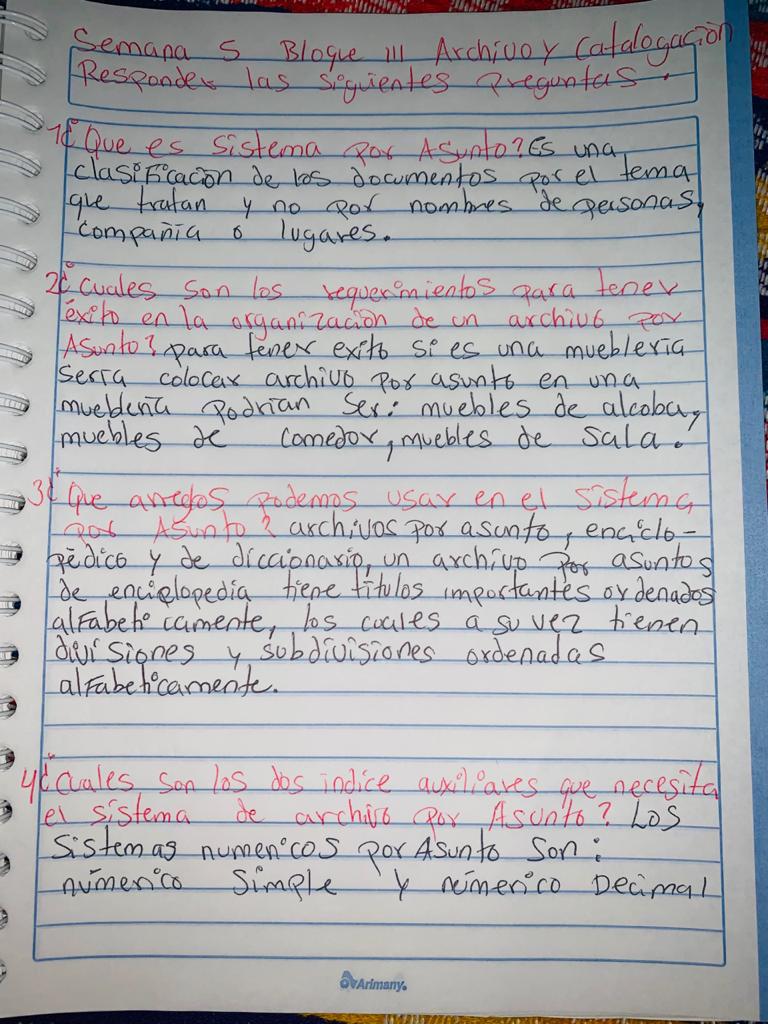 Semana 5 Bloque III Archivo y Catalogación
Responder las siguientes preguntas.
1¿Que es sistema por Asunto? Es una
clasificación de los documentos por el tema
que tratan y no por nombres de personas,
compañia o lugares.
2¿Cuales son los requerimientos para tener
éxito en la organización de un archivo por
Asunto? para tener exito si es una muebleria
serra colocar archivo por asunto en una
muebleria podrian ser: muebles de alcoba,
muebles de comedor, muebles de sala.
3¿Que arreglos podemos usar en el sistema
por Asunto? archivos por asunto, enciclo-
pédico y de diccionario, un archivo por asuntos
de enciclopedia tiene titulos importantes ordenados
alfabeticamente, los cuales a su vez tienen
divisiones y subdivisiones ordenadas
alfabeticamente.
4¿Cuales son los dos indice auxiliares que necesita
el sistema de archivo por Asunto? Los
sistemas numericos por Asunto son:
númerico simple y númerico Decimal
Arimany.